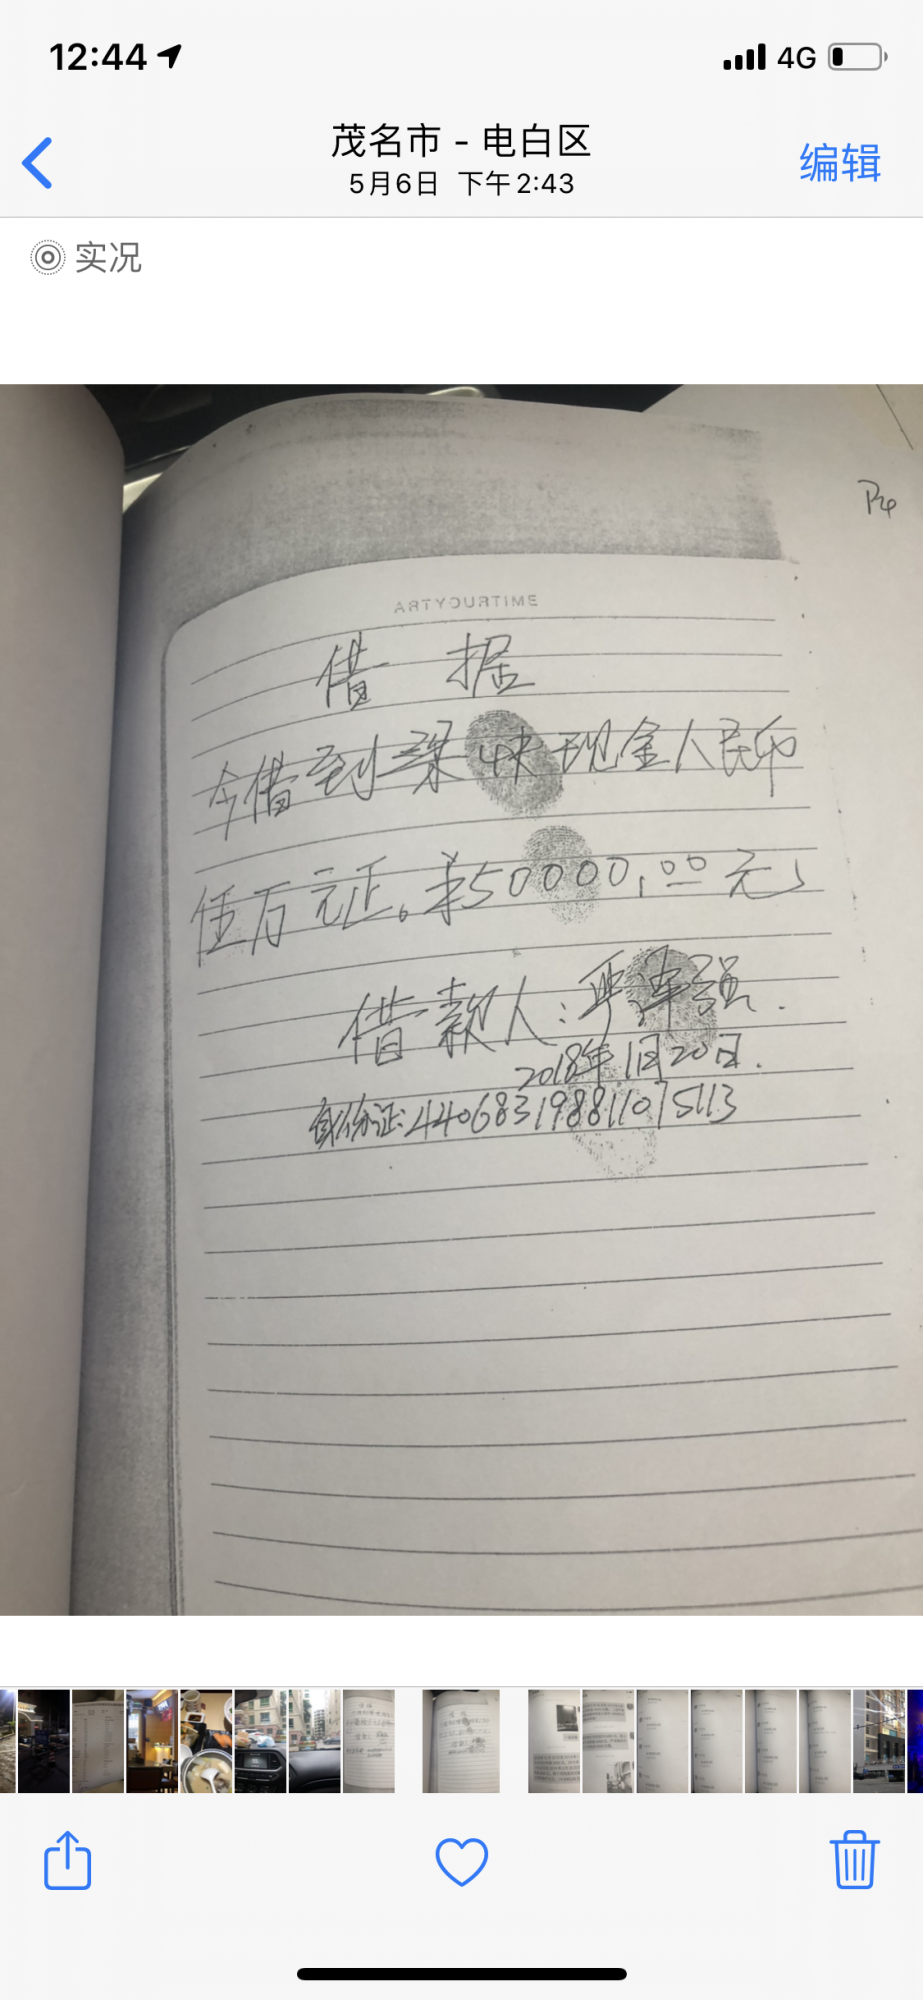 12:44
4G
茂名市 - 电白区
5月6日 下午2:43
编辑
实况
P4
ARTYOURTIME
借据
今借到梁 现金人民币
伍万元正。¥50000.00元
借款人:严 强.
2018年1月20日.
身份证:440683198811075113